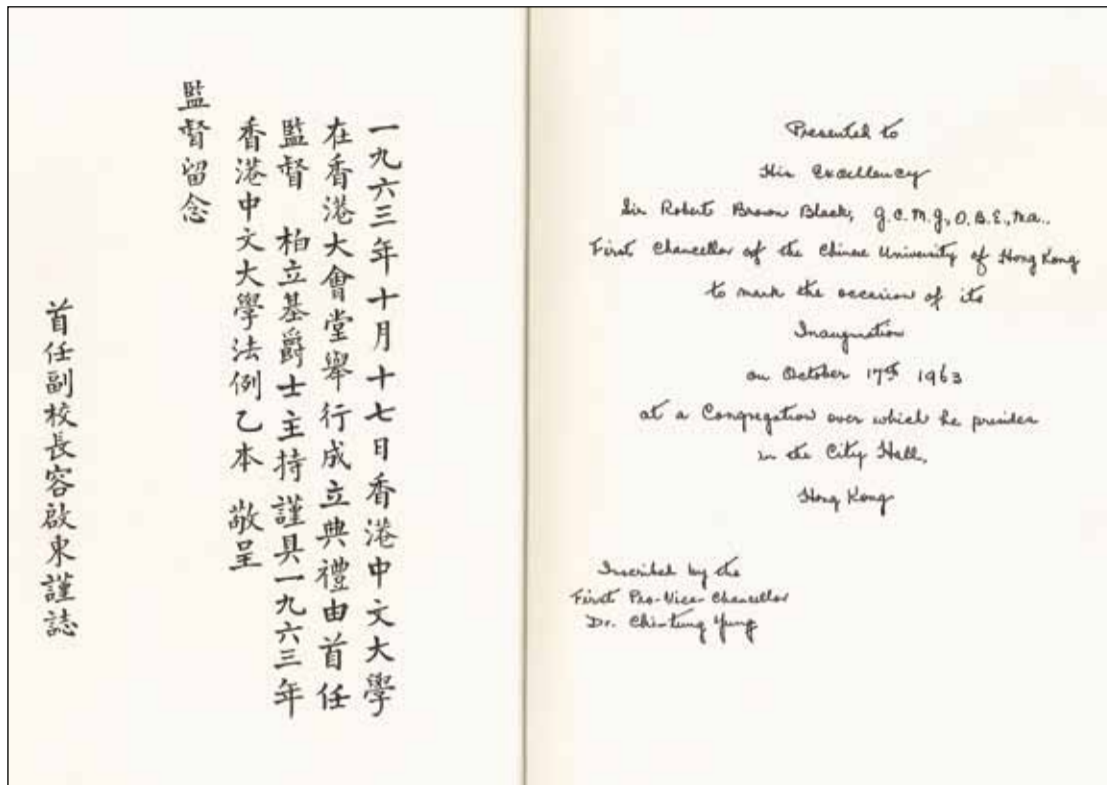 一九六三年十月十七日香港中文大學
在香港大會堂舉行成立典禮由首任
監督 柏立基爵士主持謹具一九六三年
香港中文大學法例乙本 敬呈
監督留念
首任副校長容啟東謹誌
Presented to
His Excellency
Sir Robert Brown Black, G.C.M.G., O.B.E., M.A.,
First Chancellor of the Chinese University of Hong Kong
to mark the occasion of its
Inauguration
on October 17th 1963
at a Congregation over which he presides
in the City Hall,
Hong Kong
Inscribed by the
First Pro-Vice-Chancellor
Dr. Chi-tung Yung